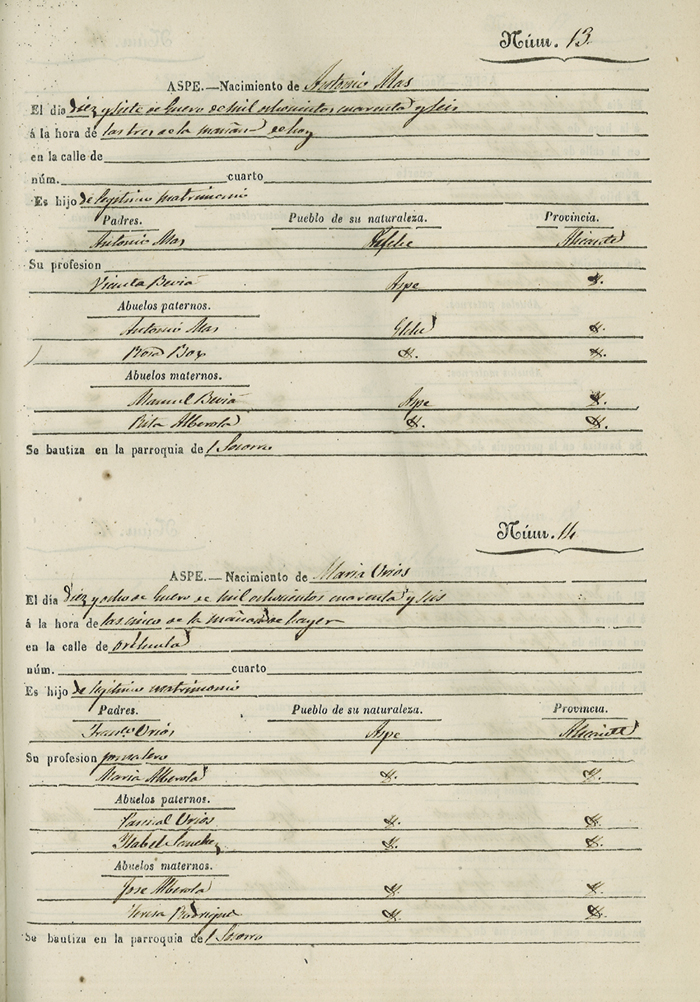 Núm. 13.
ASPE.—Nacimiento de Antonio Mas
El dia diez y siete de Enero de mil ochocientos cuarenta y seis
á la hora de las tres de la mañana de hoy
en la calle de
núm. cuarto
Es hijo de legitimo matrimonio
Padres. Pueblo de su naturaleza. Provincia.
Antonio Mas Alicante
Su profesion
Vicenta Beviá Aspe &.
Abuelos paternos.
Antonio Mas Elche &.
Rosa Box &. &.
Abuelos maternos.
Manuel Beviá Aspe &.
Rita Alberola &. &.
Se bautiza en la parroquia del Socorro
Núm. 14
ASPE.—Nacimiento de Maria Urios
El dia diez y ocho de Enero de mil ochocientos cuarenta y seis
á la hora de las cinco de la mañana de hayer
en la calle de orihuela
núm. cuarto
Es hijo de legitimo matrimonio
Padres. Pueblo de su naturaleza. Provincia.
Franco Urios Aspe Alicante
Su profesion jornalero
Maria Alberola &. &.
Abuelos paternos.
Pascual Urios &. &.
Isabel Sanchez &. &.
Abuelos maternos.
Jose Alberola &. &.
Teresa Rodriguez &. &.
Se bautiza en la parroquia del Socorro